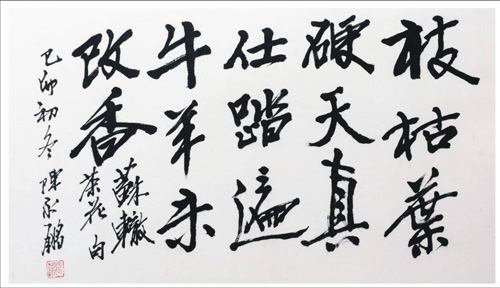 枝枯葉
硬天真
在踏遍
牛羊未
改香
蘇轍
茶花句
己卯初冬陳永鏘